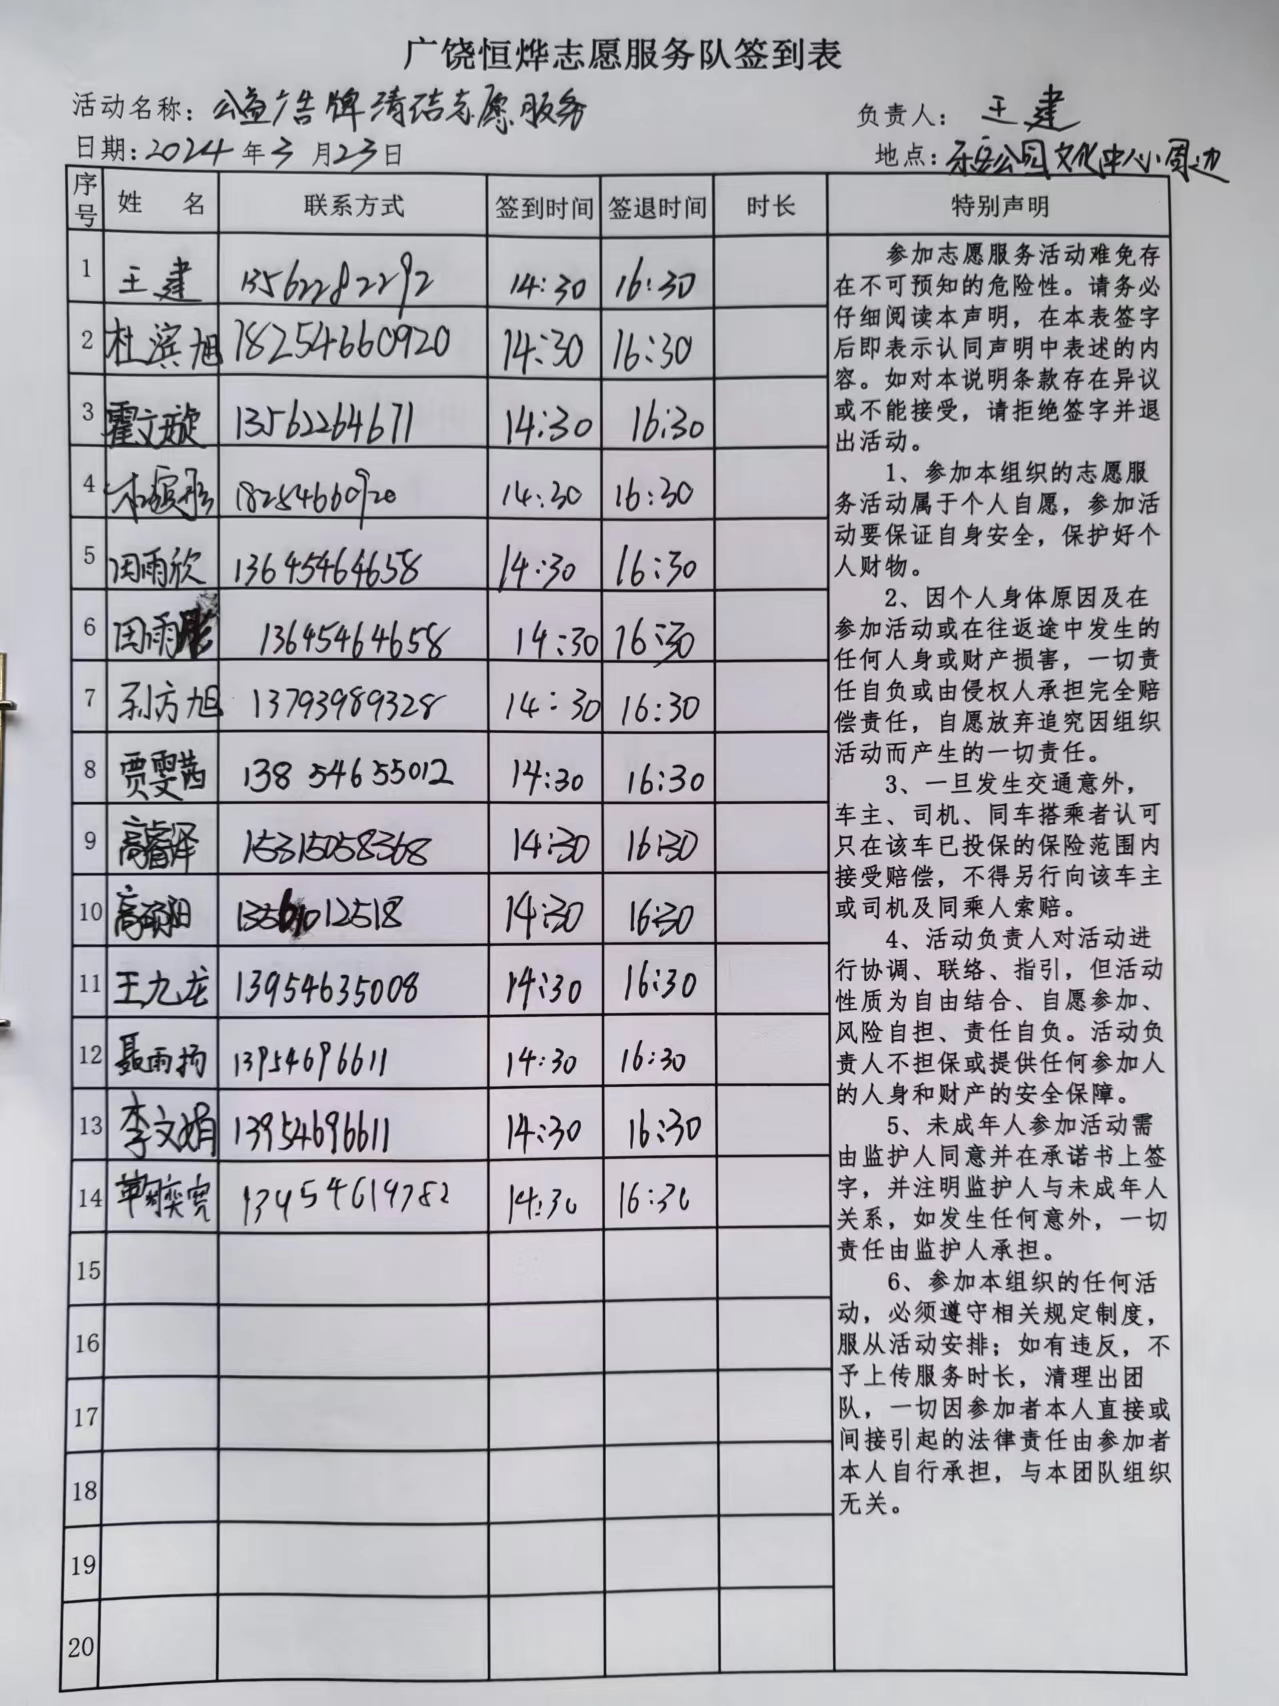 广饶恒烨志愿服务队签到表
活动名称：公益广告牌清洁志愿服务 负责人：王建
日期：2024年3月23日 地点：乐安公园文化中心周边
序号 姓 名 联系方式 签到时间 签退时间 时长 特别声明
1 王建 13562282292 14:30 16:30
2 杜滨旭 18254660920 14:30 16:30
3 霍文璇 13562264671 14:30 16:30
4 18254660920 14:30 16:30
5 田雨欣 13645464658 14:30 16:30
6 田雨 13645464658 14:30 16:30
7 孙方旭 13793989328 14:30 16:30
8 贾雯茜 13854655012 14:30 16:30
9 高睿泽 15315058368 14:30 16:30
10 14:30 16:30
11 王九龙 13954635008 14:30 16:30
12 聂雨扬 13954696611 14:30 16:30
13 李文娟 13954696611 14:30 16:30
14 14:30 16:30
15
16
17
18
19
20
参加志愿服务活动难免存
在不可预知的危险性。请务必
仔细阅读本声明，在本表签字
后即表示认同声明中表述的内
容。如对本说明条款存在异议
或不能接受，请拒绝签字并退
出活动。
1、参加本组织的志愿服
务活动属于个人自愿，参加活
动要保证自身安全，保护好个
人财物。
2、因个人身体原因及在
参加活动或在往返途中发生的
任何人身或财产损害，一切责
任自负或由侵权人承担完全赔
偿责任，自愿放弃追究因组织
活动而产生的一切责任。
3、一旦发生交通意外，
车主、司机、同车搭乘者认可
只在该车已投保的保险范围内
接受赔偿，不得另行向该车主
或司机及同乘人索赔。
4、活动负责人对活动进
行协调、联络、指引，但活动
性质为自由结合、自愿参加、
风险自担、责任自负。活动负
责人不担保或提供任何参加人
的人身和财产的安全保障。
5、未成年人参加活动需
由监护人同意并在承诺书上签
字，并注明监护人与未成年人
关系，如发生任何意外，一切
责任由监护人承担。
6、参加本组织的任何活
动，必须遵守相关规定制度，
服从活动安排；如有违反，不
予上传服务时长，清理出团
队，一切因参加者本人直接或
间接引起的法律责任由参加者
本人自行承担，与本团队组织
无关。